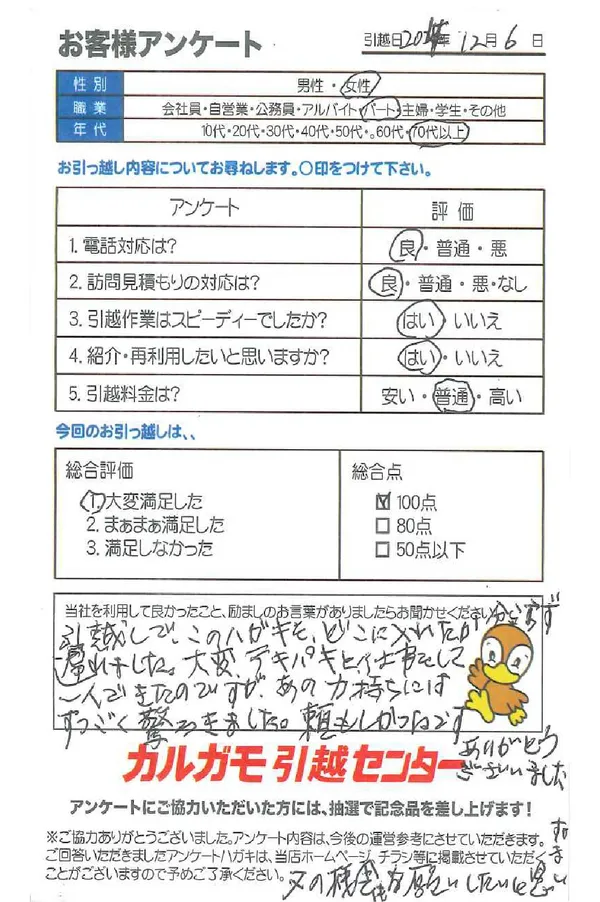 お客様アンケート
引越日 年 12月 6日
性別 男性・女性
職業 会社員・自営業・公務員・アルバイト・パート・主婦・学生・その他
年代 10代・20代・30代・40代・50代・。60代・70代以上
お引っ越し内容についてお尋ねします。〇印をつけて下さい。
アンケート 評価
1. 電話対応は? 良・普通・悪
2. 訪問見積もりの対応は? 良・普通・悪・なし
3. 引越作業はスピーディーでしたか? はい・いいえ
4. 紹介・再利用したいと思いますか? はい・いいえ
5. 引越料金は? 安い・普通・高い
今回のお引っ越しは、、
総合評価
1. 大変満足した
2. まぁまぁ満足した
3. 満足しなかった
総合点
100点
80点
50点以下
当社を利用して良かったこと、励ましのお言葉がありましたらお聞かせください 分からず
引越しで、このハガキも、どこに入れたか
遅れました。大変、テキパキと仕事をして
一人できたのですが、あの力持ちには
すっごく驚ろきました。頼もしかったです
ありがとう
ございました
カルガモ引越センター
アンケートにご協力いただいた方には、抽選で記念品を差し上げます!
※ご協力ありがとうございました。アンケート内容は、今後の運営参考にさせていただきます。
ご回答いただきましたアンケートハガキは、当店ホームページ、チラシ等に掲載させていただく
ことがございますので予めご了承ください。
又の機会 お願いしたいと思い
ます